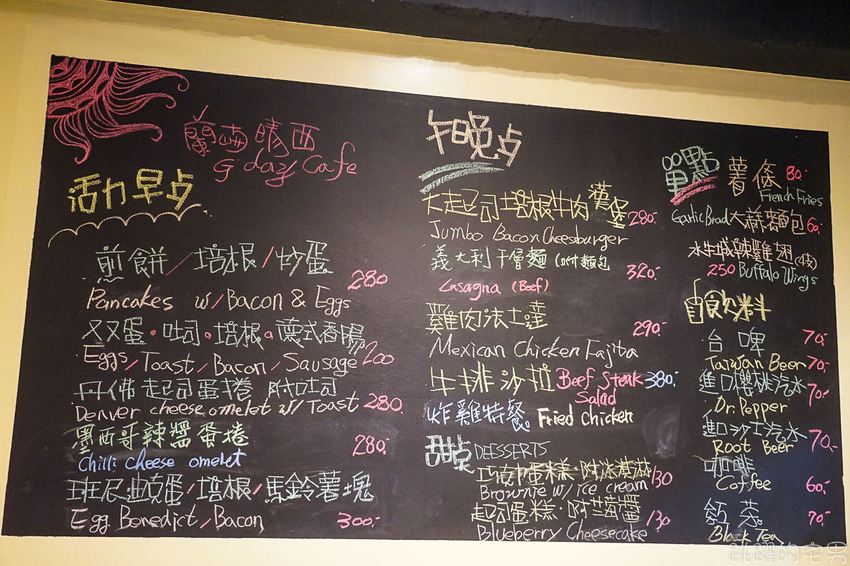 蘭嶼晴西
G'day Cafe
活力早点
煎餅/培根/炒蛋
Pancakes w/Bacon & Eggs 280
双蛋.吐司.培根.德式香腸
Eggs/Toast/Bacon/Sausage 200
丹佛起司蛋捲 附吐司
Denver cheese omelet w/ Toast 280.
墨西哥辣醬蛋捲
Chilli cheese omelet 280.
班尼迪蛋/培根/馬鈴薯塊
Egg Benedict/Bacon 300.
午晚点
大起司培根牛肉漢堡 280.
Jumbo Bacon Cheesburger
義大利千層麵(附麵包
Lasagna (Beef) 320.
雞肉法士達 290.
Mexican Chicken Fajita
牛排沙拉 Beef Steak Salad 380.
炸雞特餐 Fried Chicken
甜点 DEESSERTS
巧克力蛋糕.附冰淇淋 130
Brownie w/ ice cream
起司蛋糕.附藍莓醬 130
Blueberry Cheesecake
單點
薯條 80.
French Fries
Garlic Bread 大蒜麵包 60.
水牛城辣雞翅
250 Buffalo Wings
飲料
台啤 70.
Taiwan Beer 70.
進口櫻桃汽水 70.
Dr. Pepper
進口沙士汽水 70.
Root Beer
咖啡
Coffee 60.
紅茶 70.
Black Tea
跳躍的宅男